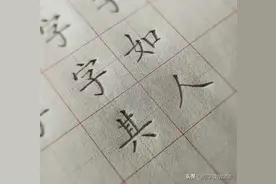 字
字如
其人
头条